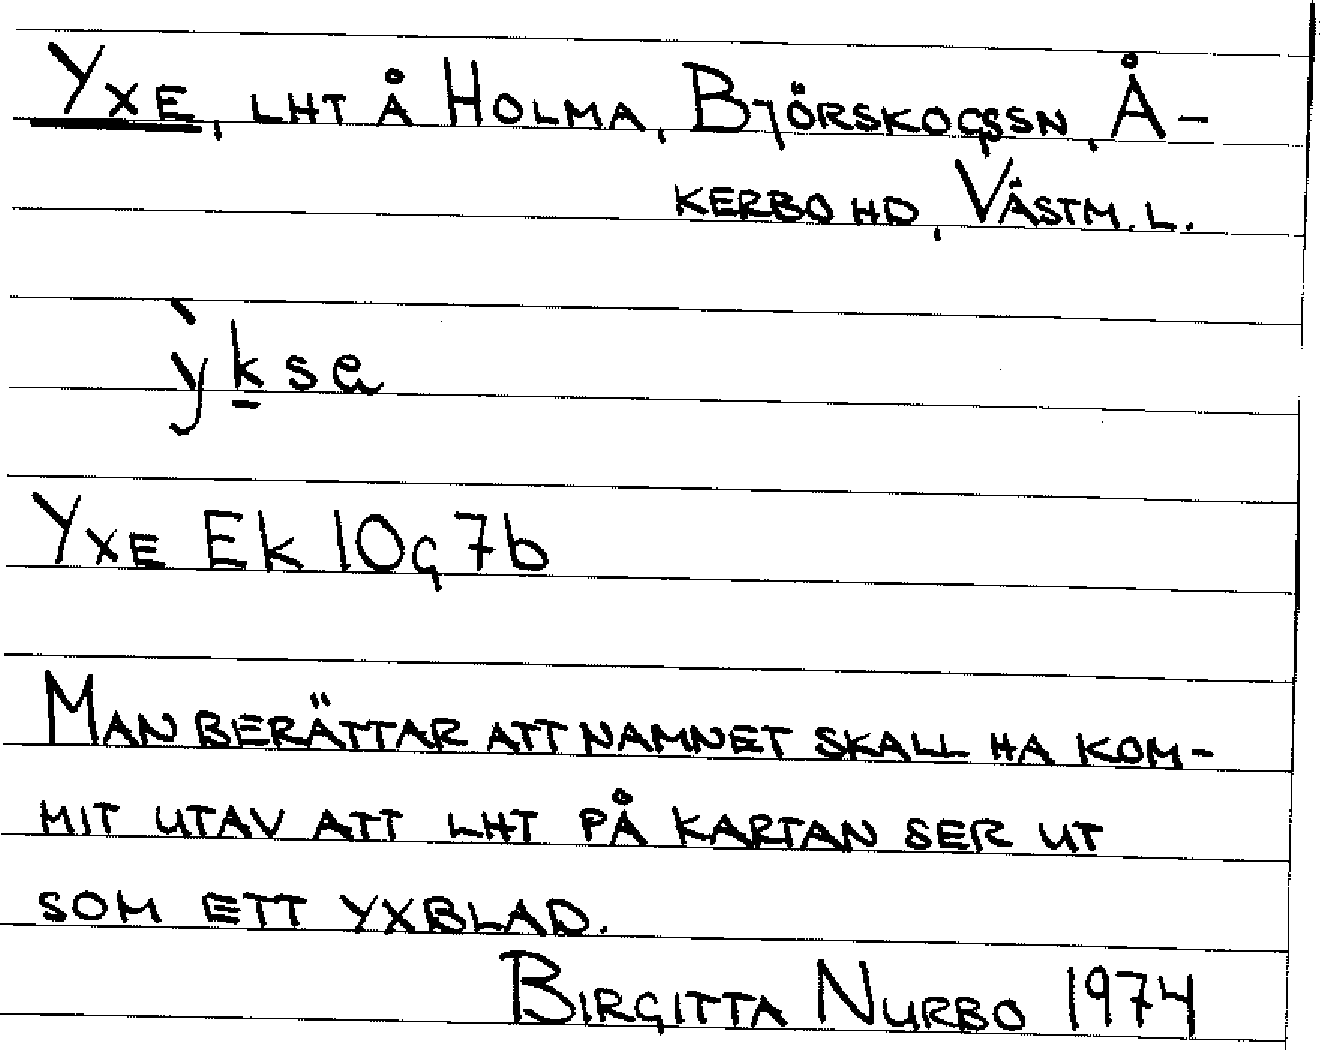 Yxe, lht å Holma, Björskogssn, Å-
kerbo hd, Västm. l.
ỳkse
Yxe Ek 10g7b
Man berättar att namnet skall ha kom-
mit utav att lht på kartan ser ut
som ett yxblad.
Birgitta Nurbo 1974